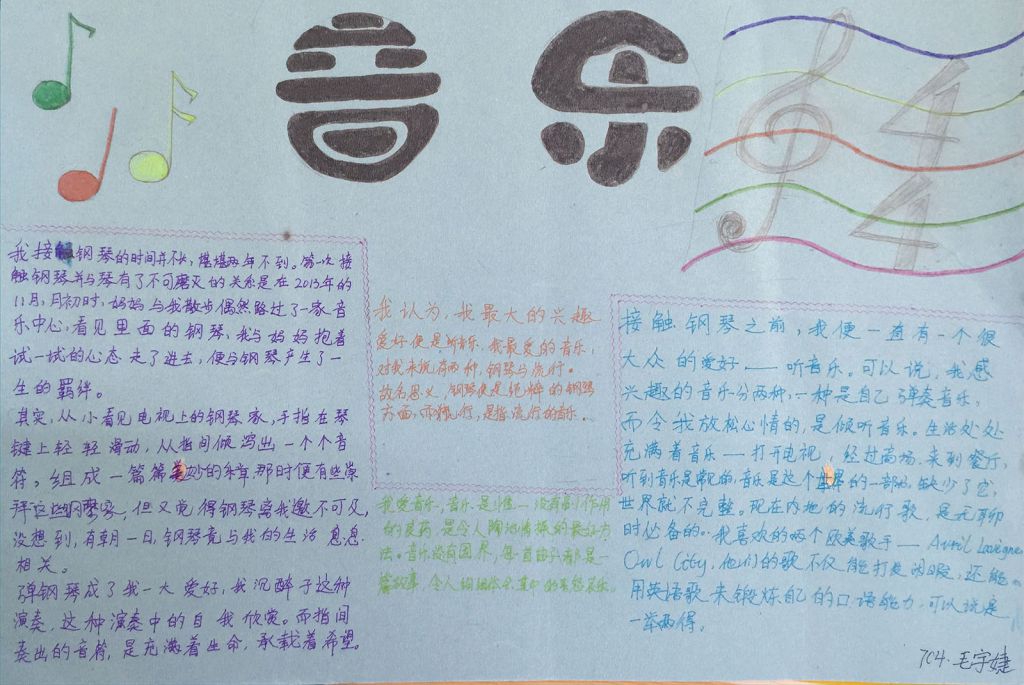 音乐
4
4
我接触钢琴的时间并不长,堪堪两年不到。第一次接
触钢琴并与琴有了不可磨灭的关系是在2013年的
11月,月初时,妈妈与我散步偶然路过了一家音
乐中心,看见里面的钢琴,我与妈妈抱着
试一试的心态走了进去,便与钢琴产生了一
生的羁绊。
其实,从小看见电视上的钢琴家,手指在琴
键上轻轻滑动,从指间倾泻出一个个音
符。组成一篇篇美妙的乐章,那时便有些崇
拜这些钢琴家,但又觉得钢琴离我遥不可及,
没想到,有朝一日,钢琴竟与我的生活息息
相关。
弹钢琴成了我一大爱好,我沉醉于这种
演奏,这种演奏中的自我欣赏。而指间
奏出的音符,是充满着生命,承载着希望。
我认为,我最大的兴趣
爱好便是听音乐.我最爱的音乐,
对我来说有两种,钢琴与流行。
故名思义,钢琴便是纯粹的钢琴
方面,而流行,是指流行的音乐.
我爱音乐,音乐是惟一没有副作用
的良药,是令人陶冶情操的最好方
法。音乐没有国界,每一首曲子都是一
篇故事,令人细细体会其中的喜怒哀乐.
接触钢琴之前,我便一直有一个很
大众的爱好——听音乐。可以说,我感
兴趣的音乐分两种,一种是自己弹奏音乐,
而令我放松心情的,是倾听音乐。生活处处
充满着音乐——打开电视,经过商场.来到餐厅,
听到音乐是常见的,音乐是这个世界的一部分,缺少了它,
世界就不完整。现在内地的流行歌,是无聊
时必备的.我喜欢的两个欧美歌手—Avril Lavigne
Owl City,他们的歌不仅能打发闲暇,还能
用英语歌来锻炼自己的口语能力,可以说是
一举两得。
704.毛宇婕